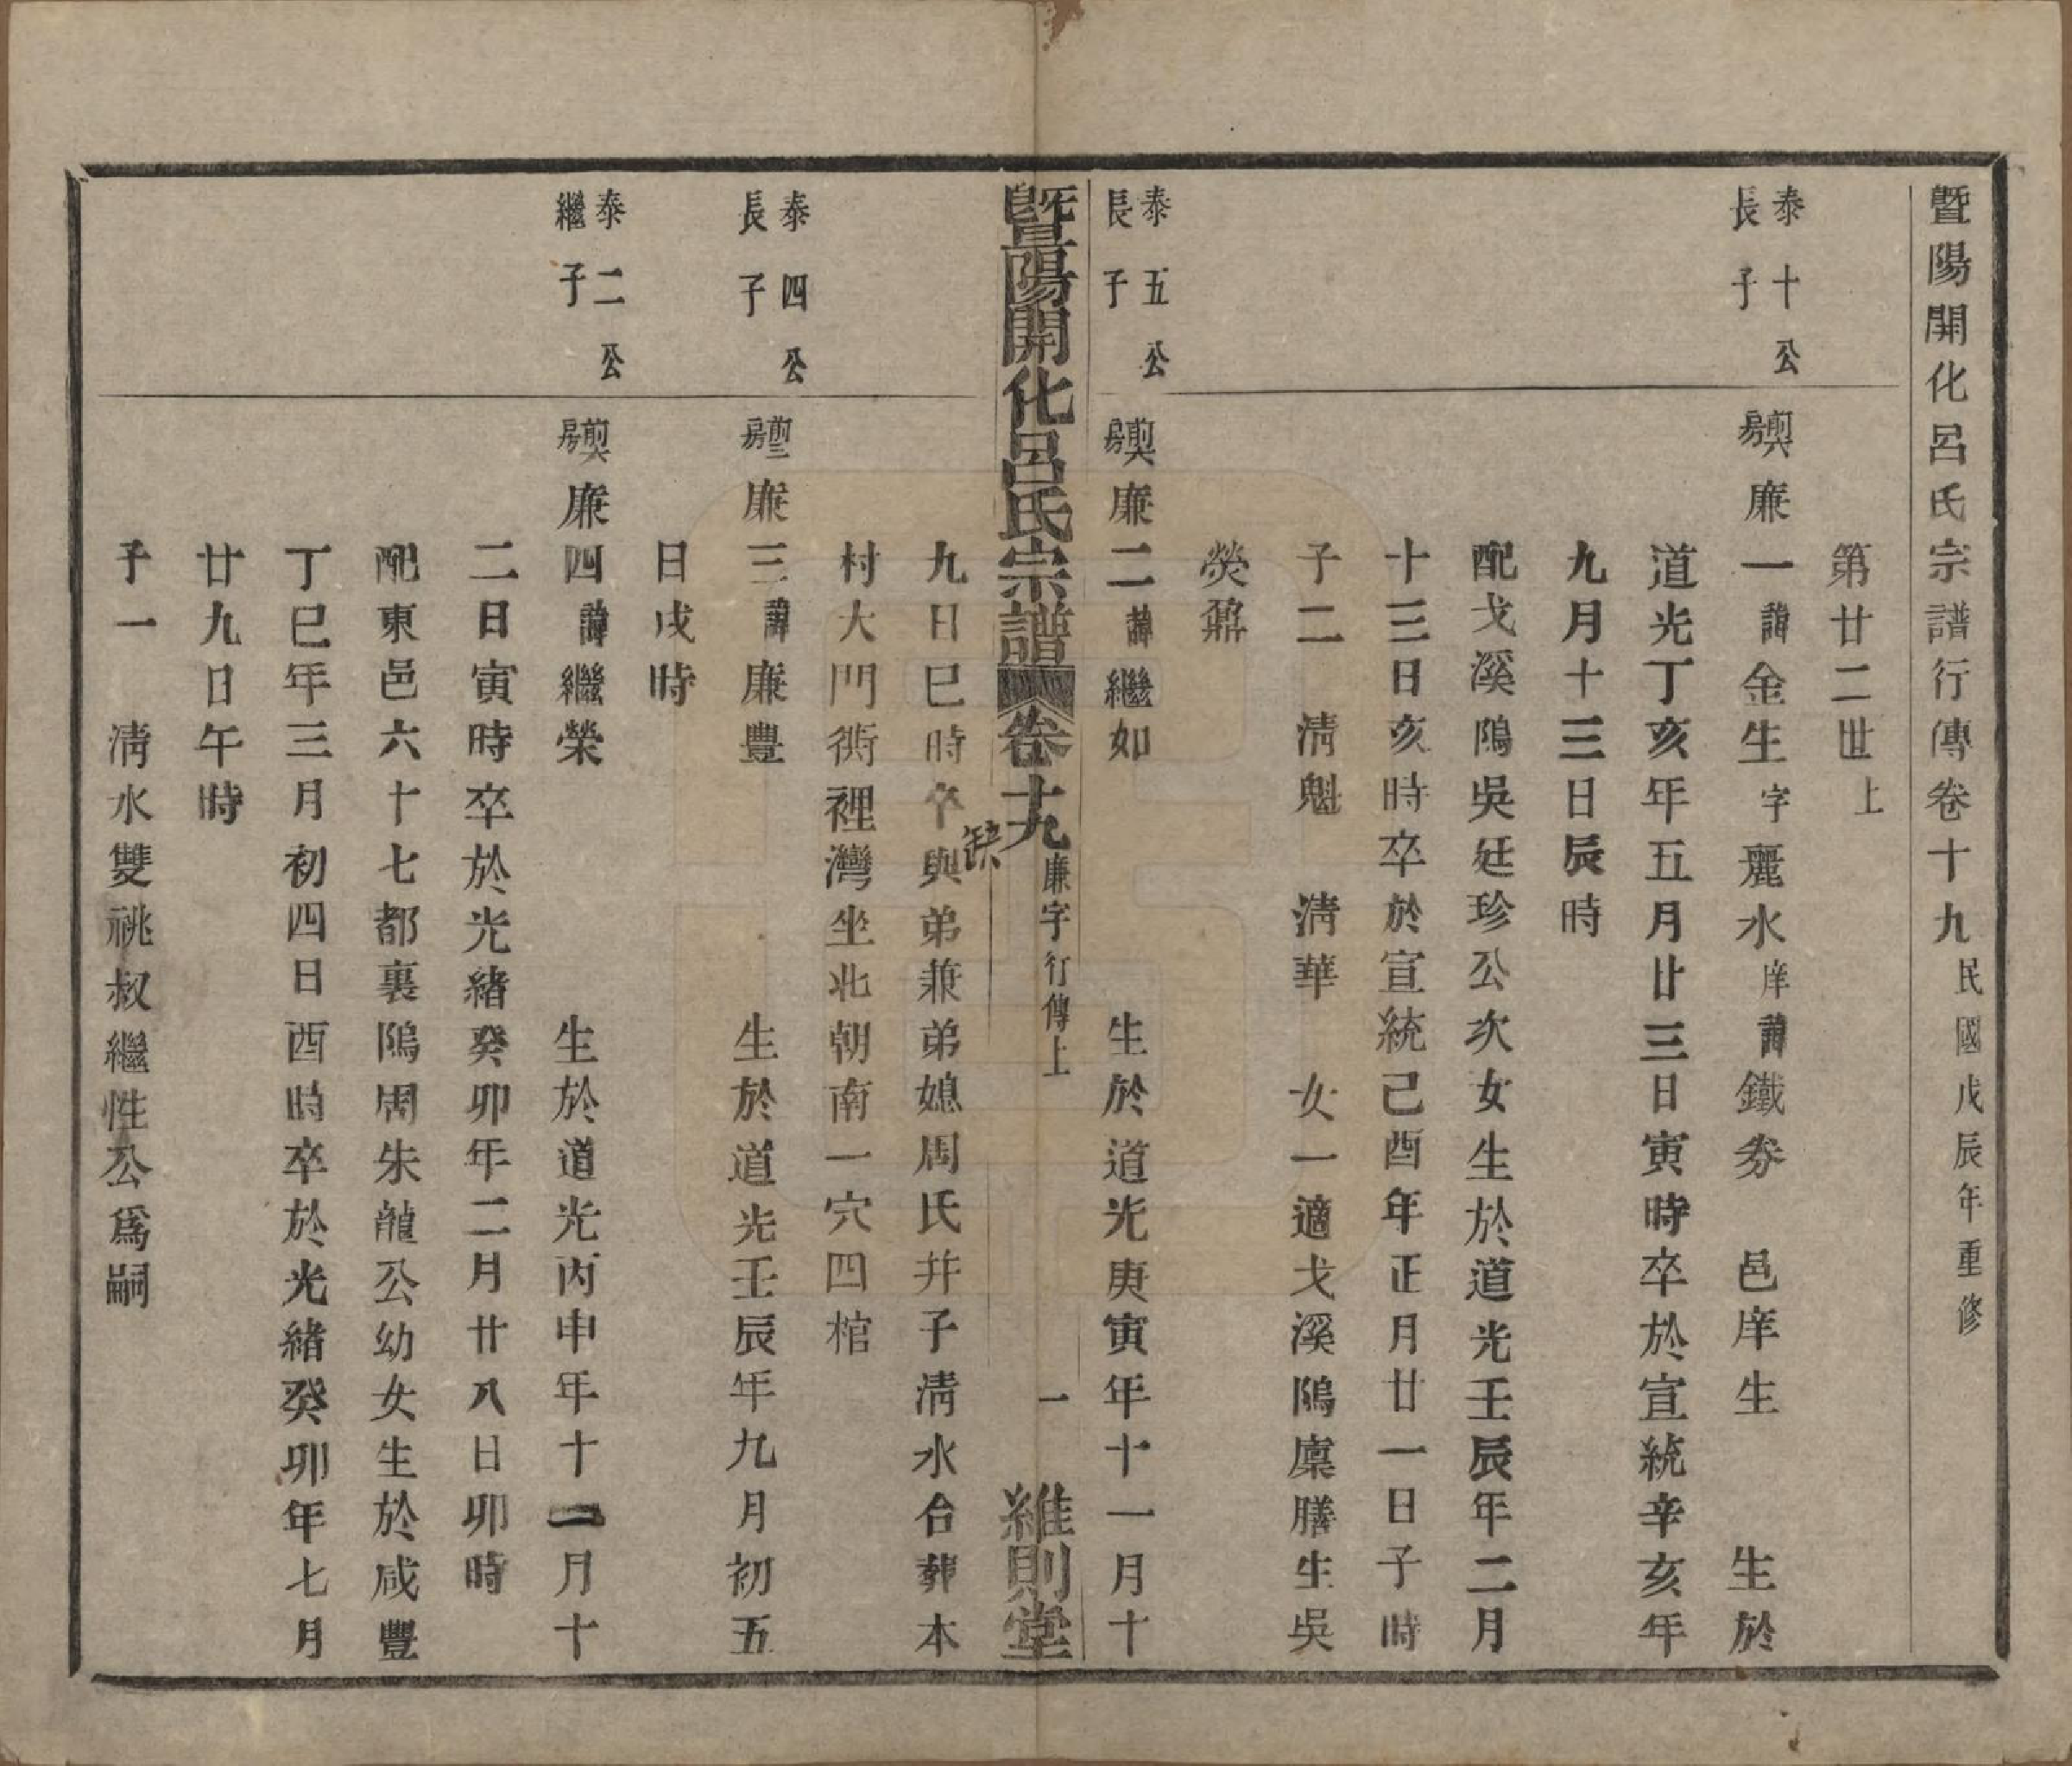 暨陽開化呂氏宗譜行傳卷十九民國戊辰年重修
第廿二世上
泰十公
長子
剪六房廉一諱金生字麗水庠諱鐵劵 邑庠生 生於
道光丁亥年五月廿三日寅時卒於宣統辛亥年
九月十三日辰時
配戈溪隖吳廷珍公次女生於道光壬辰年二月
十三日亥時卒於宣統己酉年正月廿一日子時
子二 淸魁 淸華 女一適戈溪隖廪膳生吳
熒鼐
泰五公
長子
剪六房廉二諱繼如 生於道光庚寅年十一月十
暨陽開化呂氏宗譜 卷十九 廉字行傳上 一 維則堂
九日巳時卒缺與弟兼弟媳周氏幷子淸水合葬本
村大門衖裡灣坐北朝南一穴四棺
泰四公
長子
剪二房廉三諱廉豐 生於道光壬辰年九月初五
日戌時
泰二公
繼子
剪六房廉四諱繼榮 生於道光丙申年十一月十
二日寅時卒於光緒癸卯年二月廿八日卯時
配東邑六十七都裏隖周朱龍公幼女生於咸豐
丁巳年三月初四日酉時卒於光緒癸卯年七月
廿九日午時
子一 淸水雙祧叔繼性公爲嗣